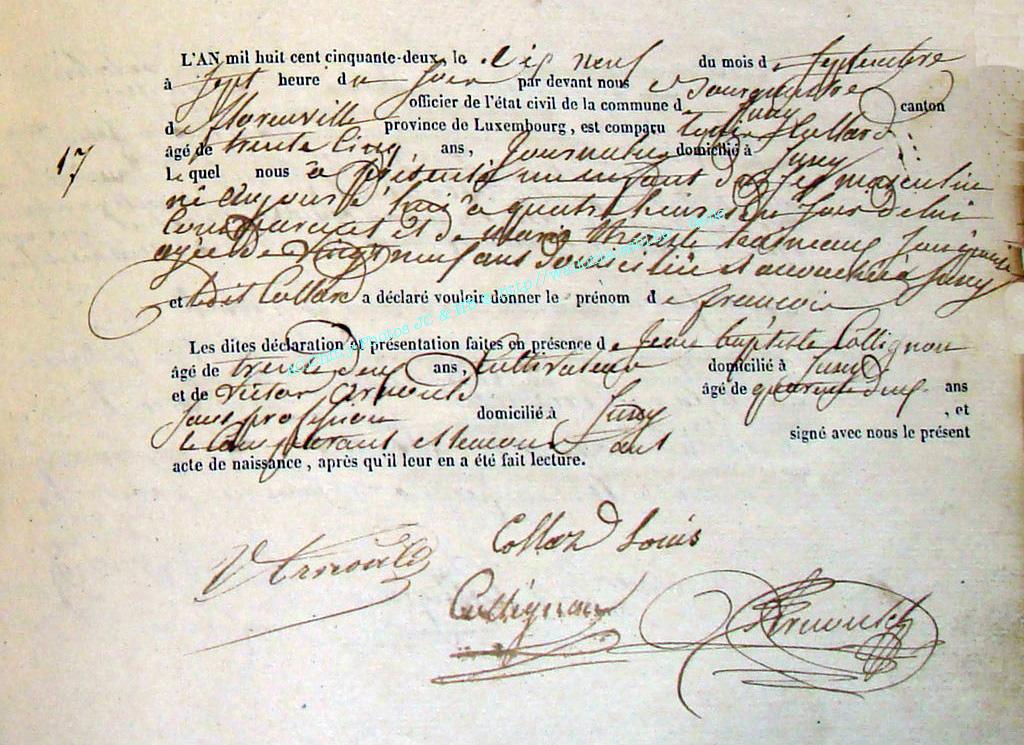 L'AN mil huit cent cinquante-deux, le dix neuf du mois de Septembre
à Sept heure du Soir par devant nous
officier de l'état civil de la commune de Juny canton
de florenville province de Luxembourg, est comparu Louis Collard
17
âgé de trente Cinq ans, Journalier domicilié à Juny
Lequel nous à présenté un enfant du sexe masculin
né aujourd'hui à quatre heures du Soir de lui
Comparant et de Marie Therese
agée de Vingt neuf ans domiciliée et accouchée à Juny
et ledit Collard a déclaré vouloir donner le prénom de francois
Les dites déclaration et présentation faites en présence de Jean baptiste Collignon
âgé de trente deux ans, Cultivateur domicilié à Juny
et de Victor Arnould âgé de quarante deux ans
Sans profession domicilié à Juny , et
le Comparant et temoins ont signé avec nous le présent
acte de naissance, après qu'il leur en a été fait lecture.
V Arnould Collard Louis
Collignon